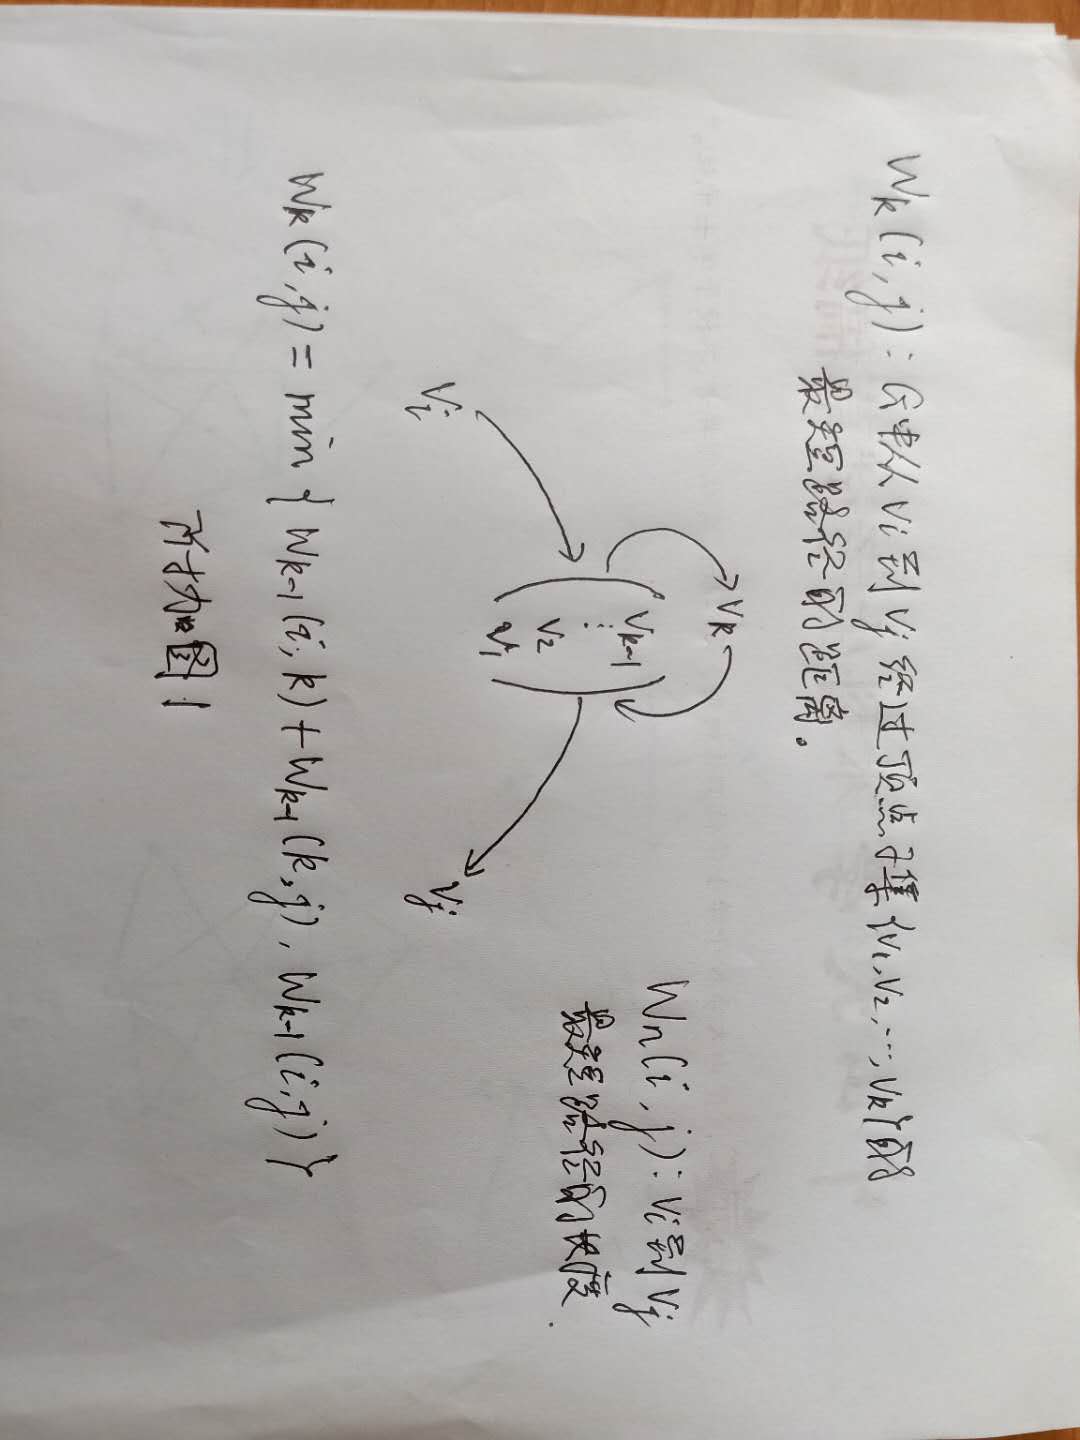 Wk(i,j)：G中从Vi到Vj经过顶点子集{V1,V2,…,Vk}的
最短路径的距离。
Vk
Vk-1
⋮
V2
V1
Vi
Vj
Wn(i,j)：Vi到Vj
最短路径的长度.
Wk(i,j)=min{Wk-1(i,k)+Wk-1(k,j), Wk-1(i,j)}
附加图1